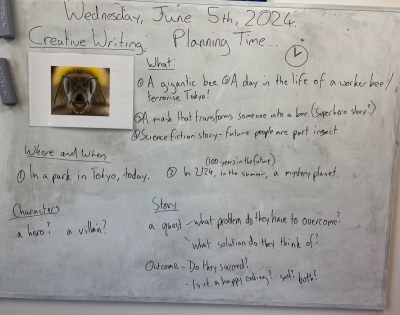 Wednesday, June 5th, 2024.
Creative Writing. Planning Time...
What:
① A gigantic bee ② A day in the life of a worker bee!
terrorise Tokyo!
③ A mask that transforms someone into a bee. (Superhero story?)
④ Science fiction story - future people are part insect
Where and When
(100 years in the future)
① In a park in Tokyo, today. ② In 2124, in the summer, a mystery planet.
Characters
a hero? a villain?
Story
a quest - what problem do they have to overcome?
what solution do they think of?
Outcome - Do they succeed?
- Is it a happy ending? sad? both?